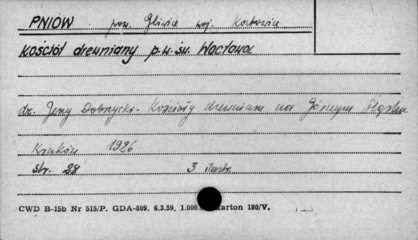 PNIÓW pow. Gliwice woj. Katowice
Kościół drewniany p.w. św. Wacława
dr. Jerzy Dobrzycki - Kościoły drewniane na Górnym Śląsku
Kraków 1926
str. 28 3 ilustr.
CWD B-15b Nr 515/P. GDA-809. 6.3.59. 1.000. karton 180/V.